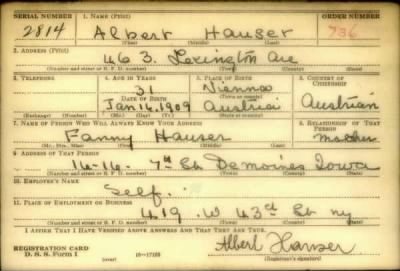 SERIAL NUMBER 1. NAME (Print) ORDER NUMBER
2814 Albert Hauser 736
(First) (Middle) (Last)
2. ADDRESS (Print)
463. Lexington Ave
(Number and street or R. F. D. number) (Town) (County) (State)
3. TELEPHONE 4. AGE IN YEARS 5. PLACE OF BIRTH 6. COUNTRY OF CITIZENSHIP
31 Vienna
DATE OF BIRTH (Town or county)
Jan. 14. 1909 Austria Austrian
(Exchange) (Number) (Mo.) (Day) (Yr.) (State or country)
7. NAME OF PERSON WHO WILL ALWAYS KNOW YOUR ADDRESS 8. RELATIONSHIP OF THAT PERSON
Fanny Hauser Mother
(Mr., Mrs., Miss) (First) (Middle) (Last)
9. ADDRESS OF THAT PERSON
14-16- 7th Demoines Iowa
(Number and street or R. F. D. number) (Town) (County) (State)
10. EMPLOYER'S NAME
Self.
11. PLACE OF EMPLOYMENT OR BUSINESS
419. W 43rd ny
(Number and street or R. F. D. number) (Town) (County) (State)
I AFFIRM THAT I HAVE VERIFIED ABOVE ANSWERS AND THAT THEY ARE TRUE.
REGISTRATION CARD Albert Hauser
D. S. S. Form 1 (over) 16—17105 (Registrant's signature)